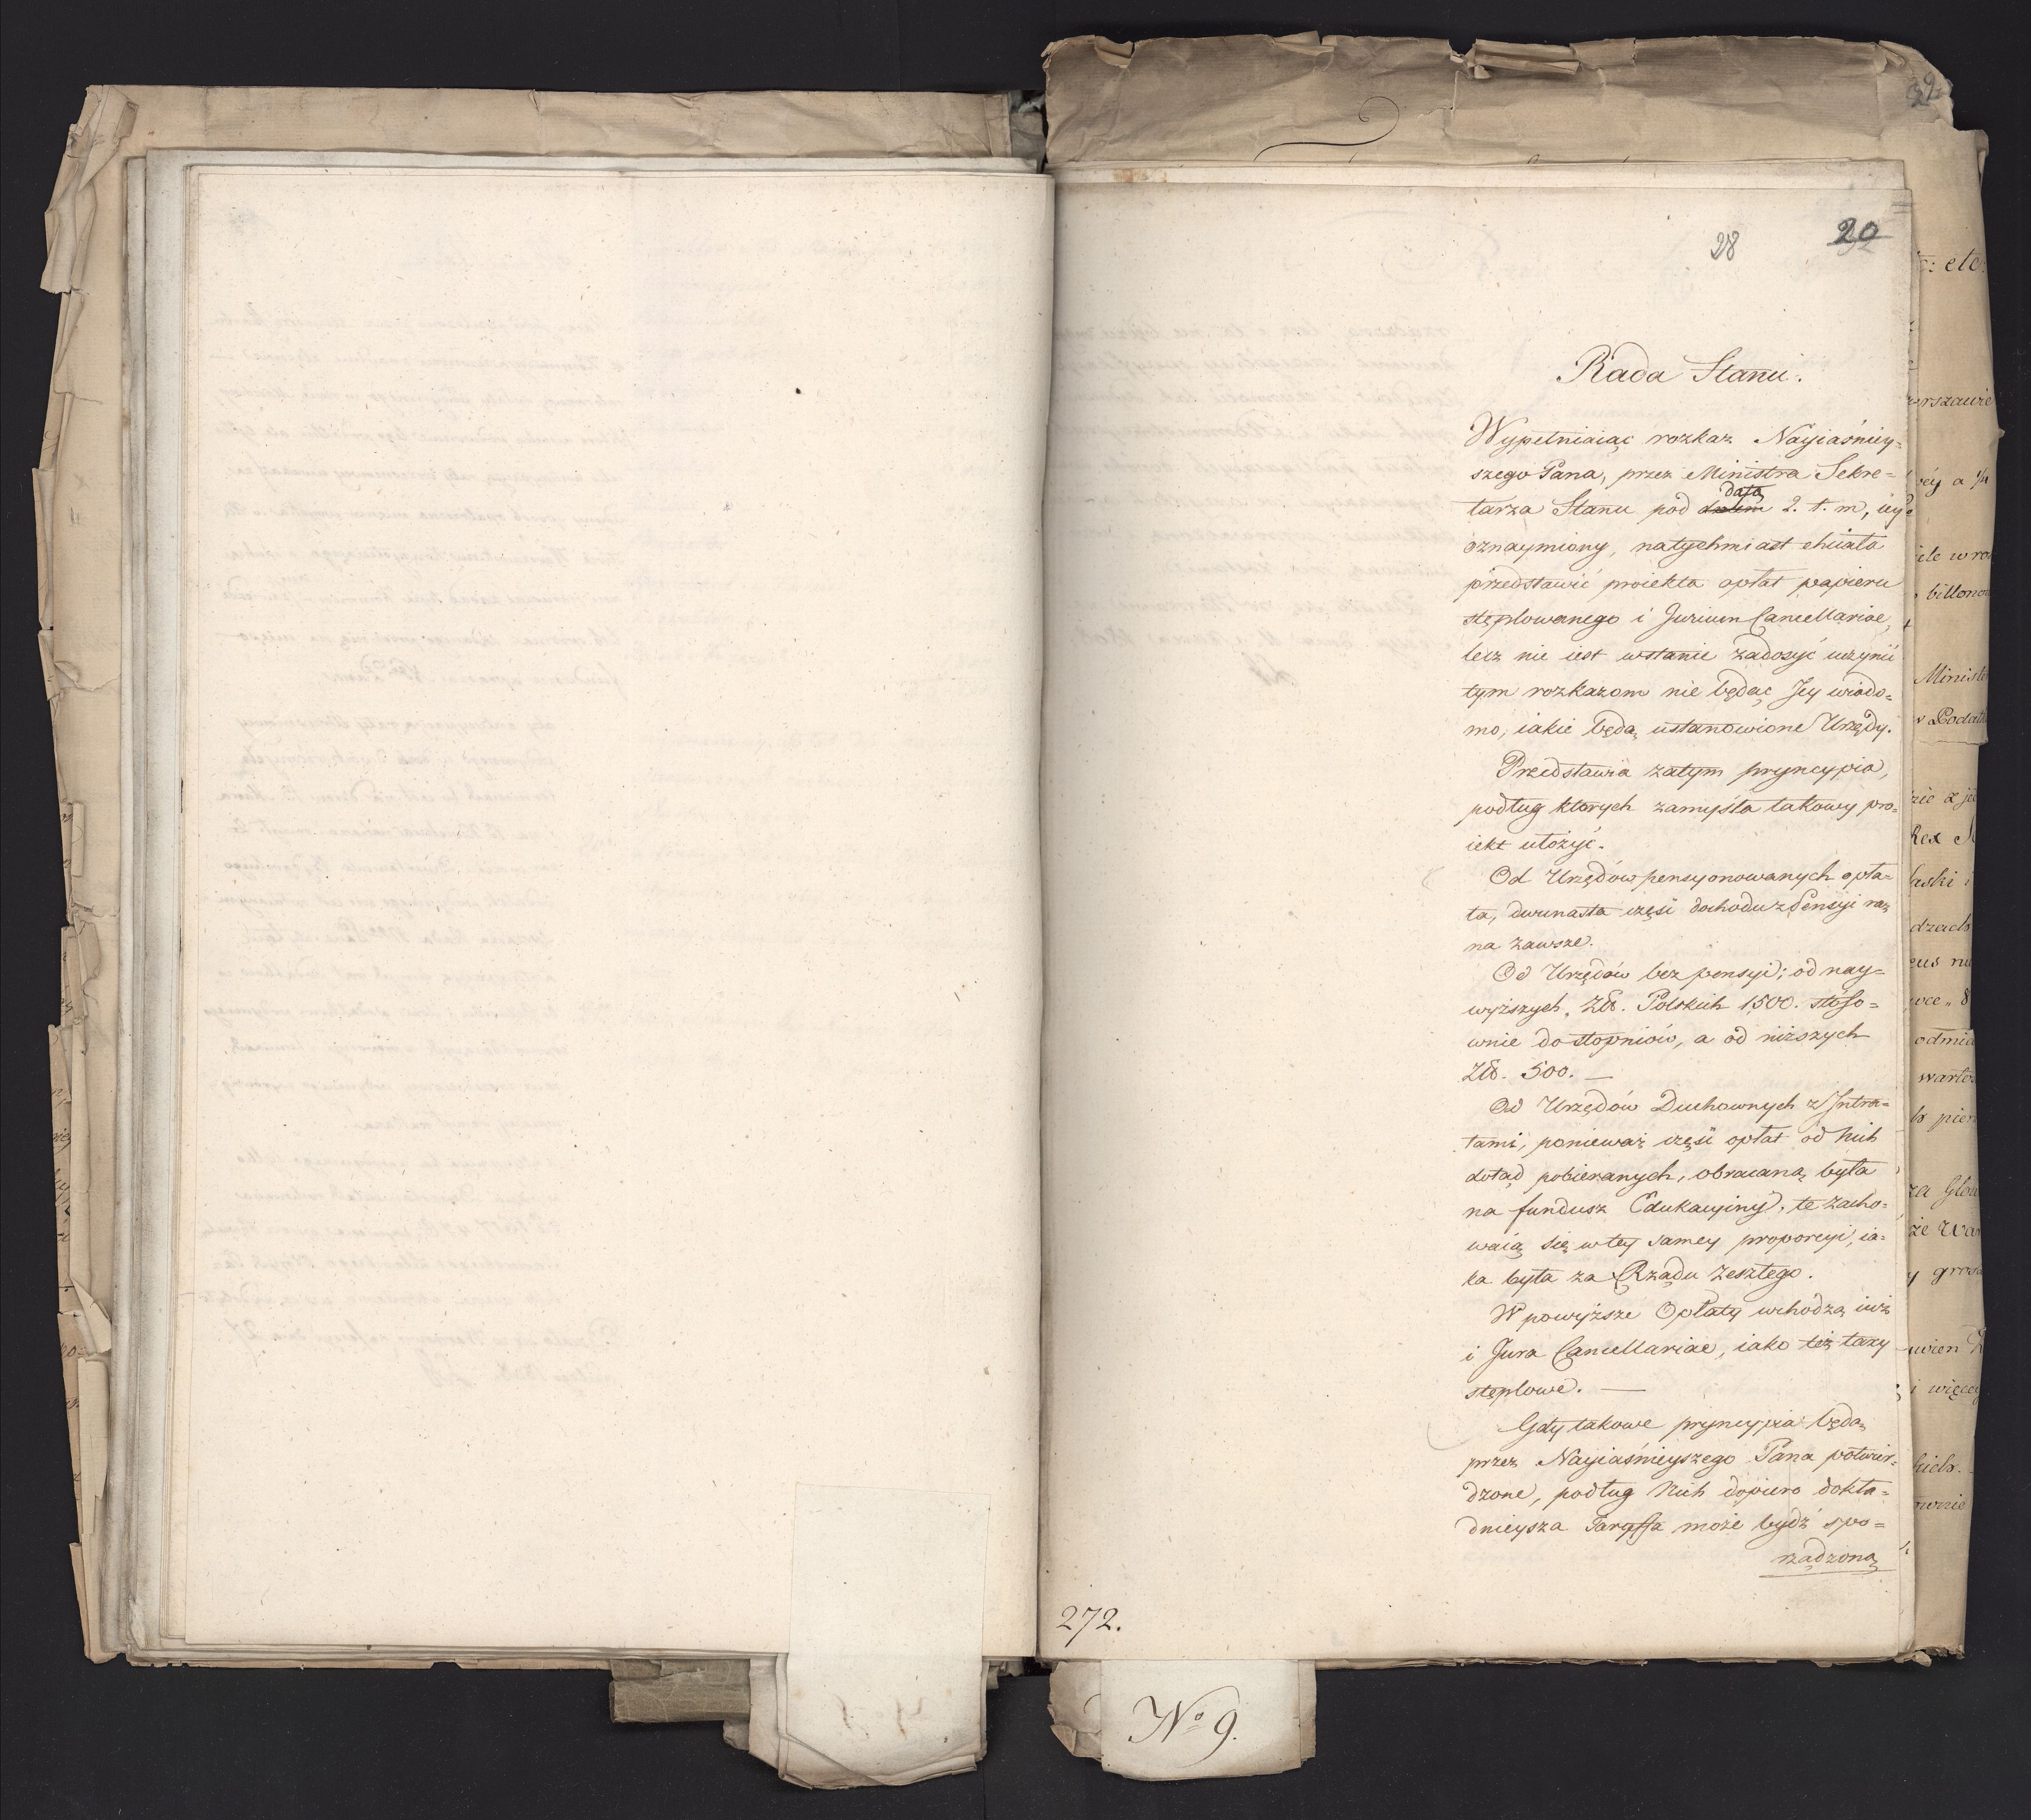 32
28
20
Rada Stanu.
Wypełniaiąc rozkaz Nayiaśniey=
szego Pana, przez Ministra Sekre=
tarza Stanu pod datą 2. t. m, iey
oznaymiony, natychmiast chciała
przedstawić proiekta opłat papieru
stęplowanego i Jurium Cancellariae,
lecz nie iest wstanie zadosyć uczynić
tym rozkazom nie będąc Jey wiado=
mo, iakie będą ustanowione Urzędy.
Przedstawia zatym pryncypia,
podług ktorych zamyśla takowy pro=
iekt ułożyć.
Od Urzędów pensyonowanych opła=
ta, dwunasta część dochodu z Pensyi raz
na zawsze.
Od Urzędów bez pensyi; od nay=
wyższych, Zł. Polskich 1,500. stóso=
wnie do stopniów, a od niższych
Zł. 500. —
Od Urzędów Duchownych z Intra=
tami, ponieważ część opłat od nich
dotąd pobieranych, obracaną była
na fundusz Edukacyiny, te zacho=
waią się w tey samey proporcyi, ia=
ka była za Rządu Zeszłego.
W powyższe Opłaty wchodzą iuż
i Jura Cancellariae, iako też taxy
stęplowe. —
Gdy takowe pryncypia będą
przez Nayiaśnieyszego Pana potwier=
dzone, podług nich dopiero dokła=
dnieysza Taryffa może bydź spo=
rządzoną
272.
No 9.